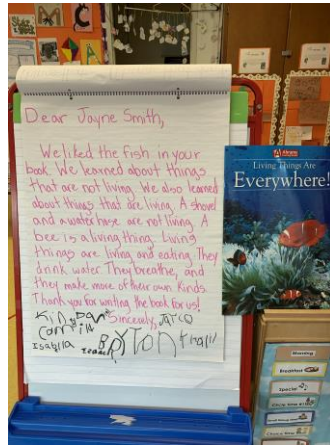 Dear Jayne Smith,
We liked the fish in your
book. We learned about things
that are not living. We also learned
about things that are living. A shovel
and a water hose are not living. A
bee is a living thing. Living
things are living and eating. They
drink water. They breathe, and
they make more of their own kinds.
Thank you for writing the book for us!
Sincerely,
Camila
Isabella
Living Things Are
Everywhere!
Morning
Breakfast
Special
Circle Time